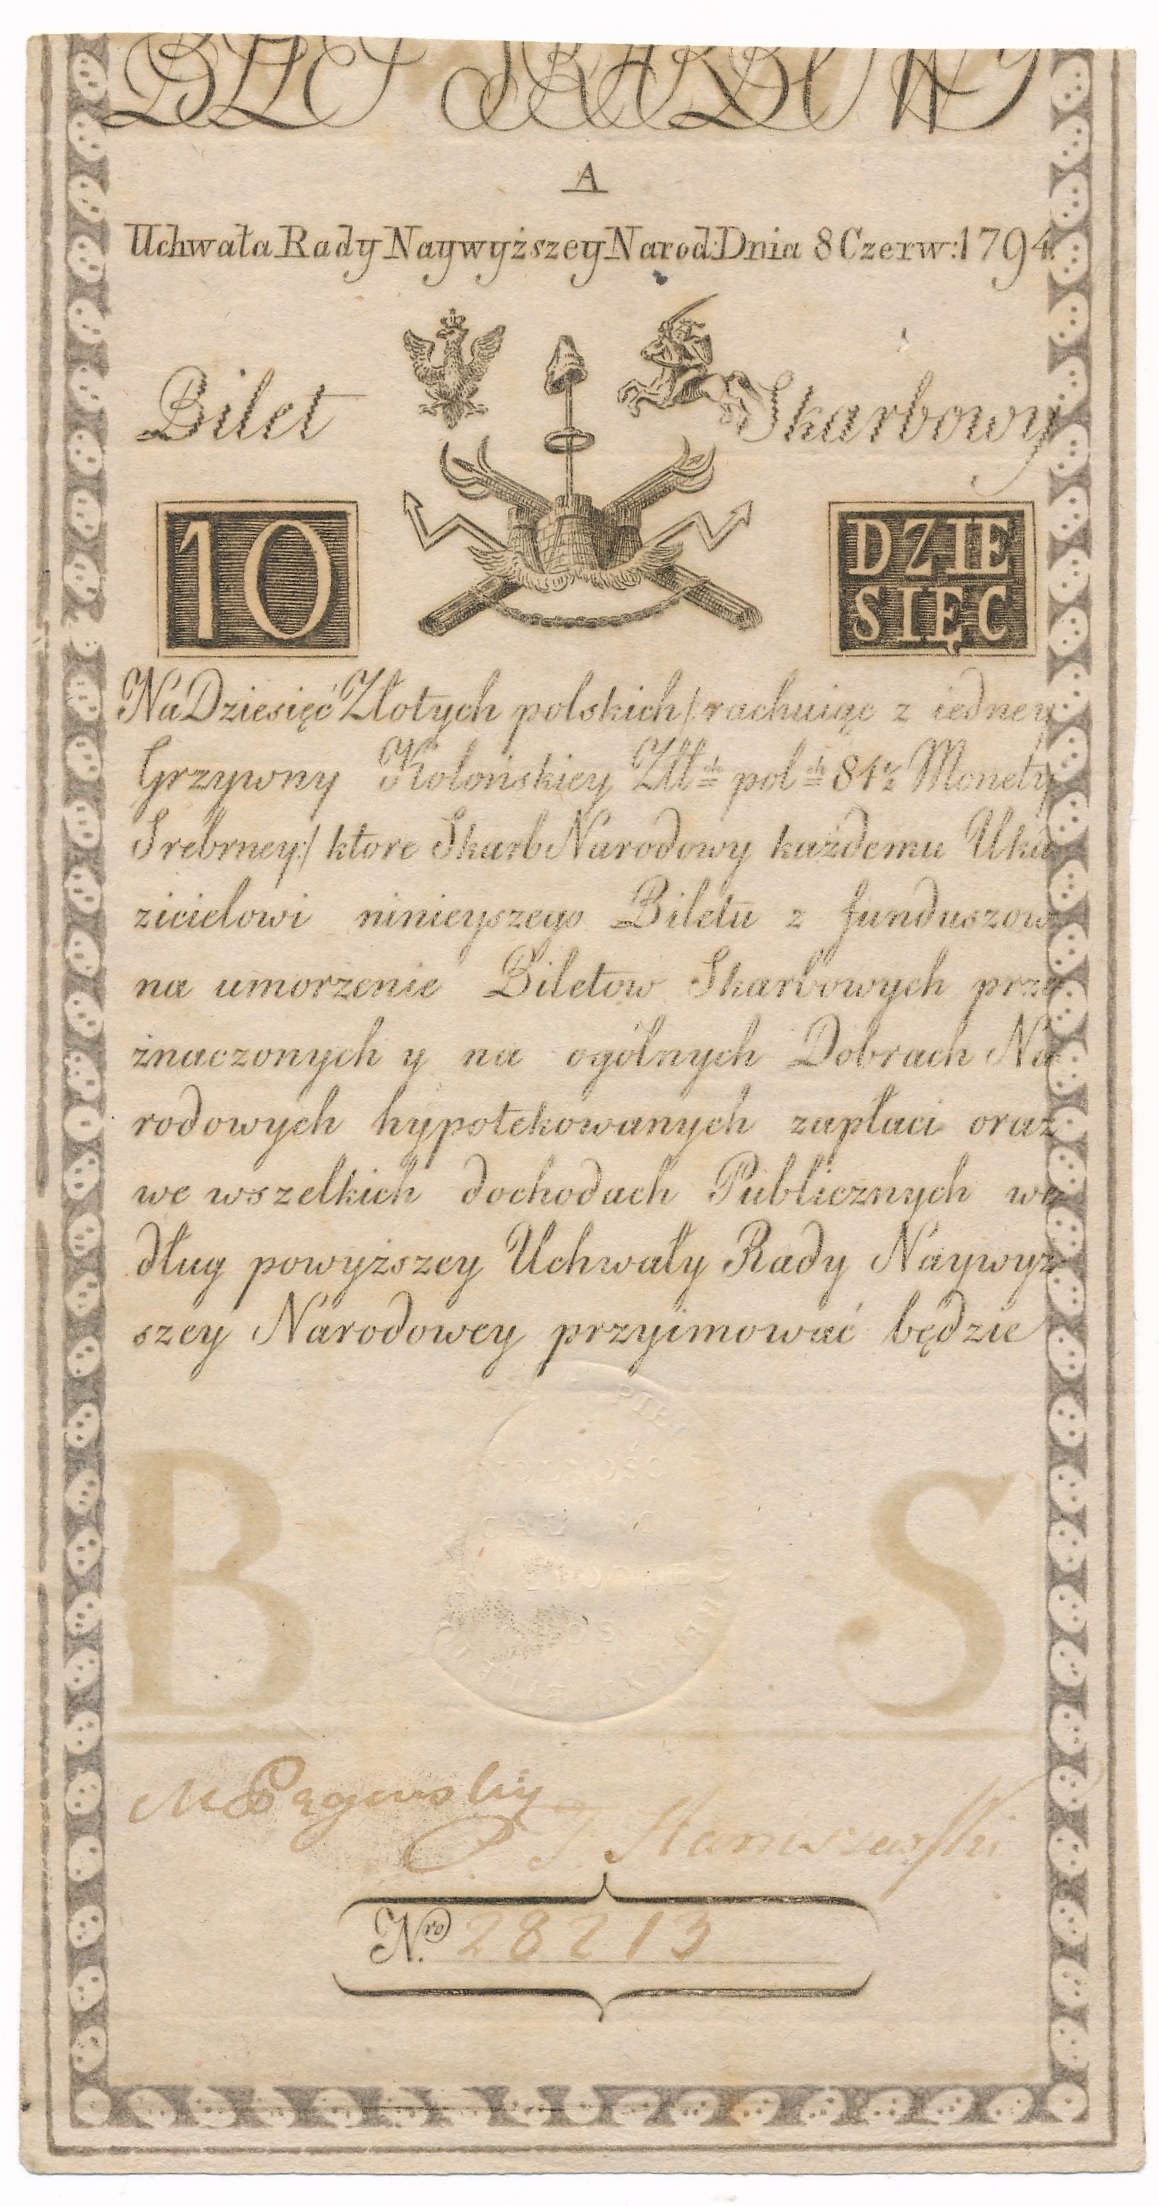 BILET SKARBOWY
A
Uchwała Rady Naywyższey Narod: Dnia 8 Czerw: 1794
Bilet Skarbowy
10
DZIE
SIĘC
Na Dziesięć Złotych polskich /: rachuiąc z iedney
Grzywny Kolońskiey Złł=ch pol=ch 84½ Monety
Srebrney :/ ktore Skarb Narodowy każdemu Uka
zicielowi ninieyszego Biletu z funduszow
na umorzenie Biletow Skarbowych prze
znaczonych y na ogólnych Dobrach Na
rodowych hypotekowanych zapłaci oraz
we wszelkich dochodach Publicznych we
dług powyższey Uchwały Rady Naywyż
szey Narodowey przyimować będzie
WOLNOŚĆ
B S
N.ro 28213